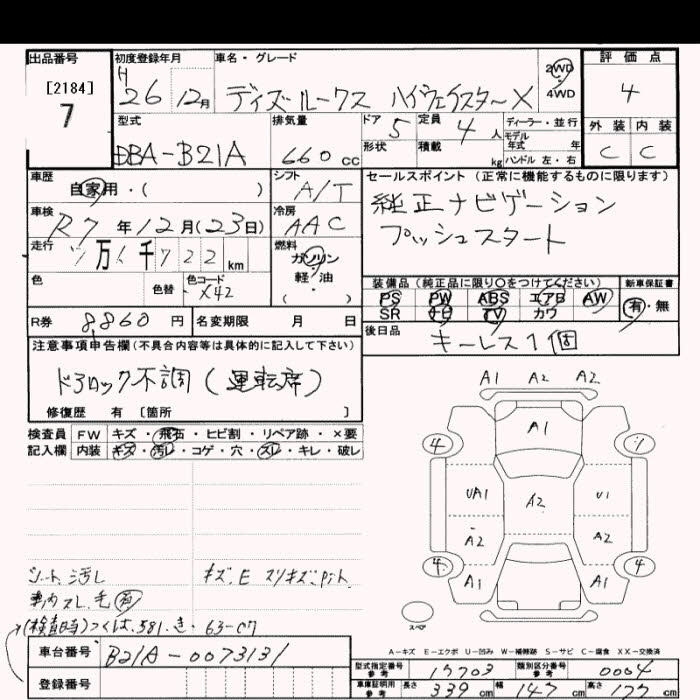 出品番号 初度登録年月 車名・グレード 評価点
[2184]
7
H 26 12月 デイズルークス ハイウェイスターX 2WD 4WD 4
型式 排気量 ドア 定員 ディーラー・並行 外装 内装
DBA-B21A 660 cc 5 4人 モデル年式 年 C C
形状 積載 kg ハンドル 左・右
車歴 自家用・( ) シフト A/T セールスポイント (正常に機能するものに限ります)
純正ナビゲーション
プッシュスタート
車検 R7年12月(23日) 冷房 AAC
走行 万 千722 km 燃料 ガソリン 軽・油 ( )
色 色替 色コード X42
装備品 (純正品に限り○をつけてください) 新車保証書
PS PW ABS エアB AW 有・無
SR ナビ TV カワ
R券 8,860 円 名変期限 月 日
後日品 キーレス1個
注意事項申告欄(不具合内容等は具体的に記入して下さい)
ドアロック不調(運転席)
修復歴 有 [箇所 ]
検査員 FW キズ・飛石・ヒビ割・リペア跡・×要
記入欄 内装 キズ・汚レ・コゲ・穴・スレ・キレ・破レ
A1 A2 A2
A1
4 1
UA1 A2 U1
A2 A2
4 4
A1 A1
スペア
シート汚レ キズ、E スリキズ
車内スレ.毛 有
(検査時)つくば.581.き.63-07
A-キズ E-エクボ U-凹み W-補修跡 S-サビ C-腐食 XX-交換済
車台番号 B21A-0073131
登録番号
型式指定番号 参考 17703 類別区分番号 参考 0004
車庫証明用 参考 長さ 339 cm 幅 147 cm 高さ 177 cm